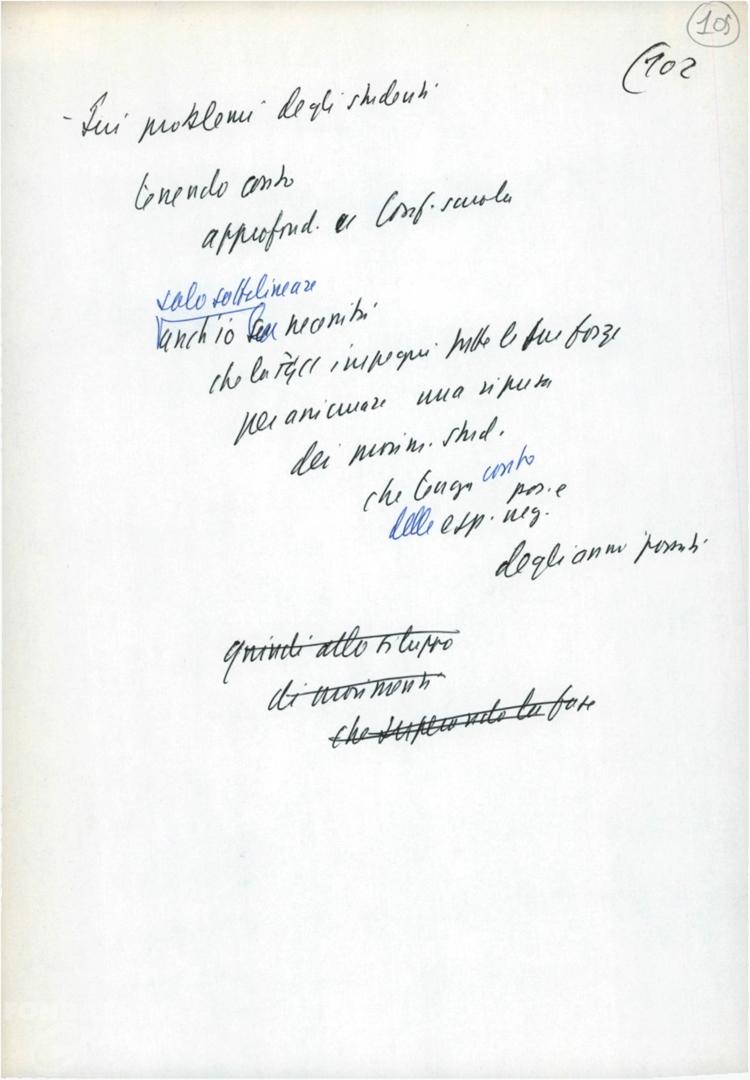 105
(102
- Sui problemi degli studenti
tenendo conto
approfond. a Conf. scuola
solo sottolineare
anch'io la necessità
che la FGCI impegni tutte le sue forze
per animare una ripresa
dei movim. stud.
che tenga conto
delle esp. pos. e neg.
degli anni passati
quindi allo sviluppo
di movimenti
che superando la fase